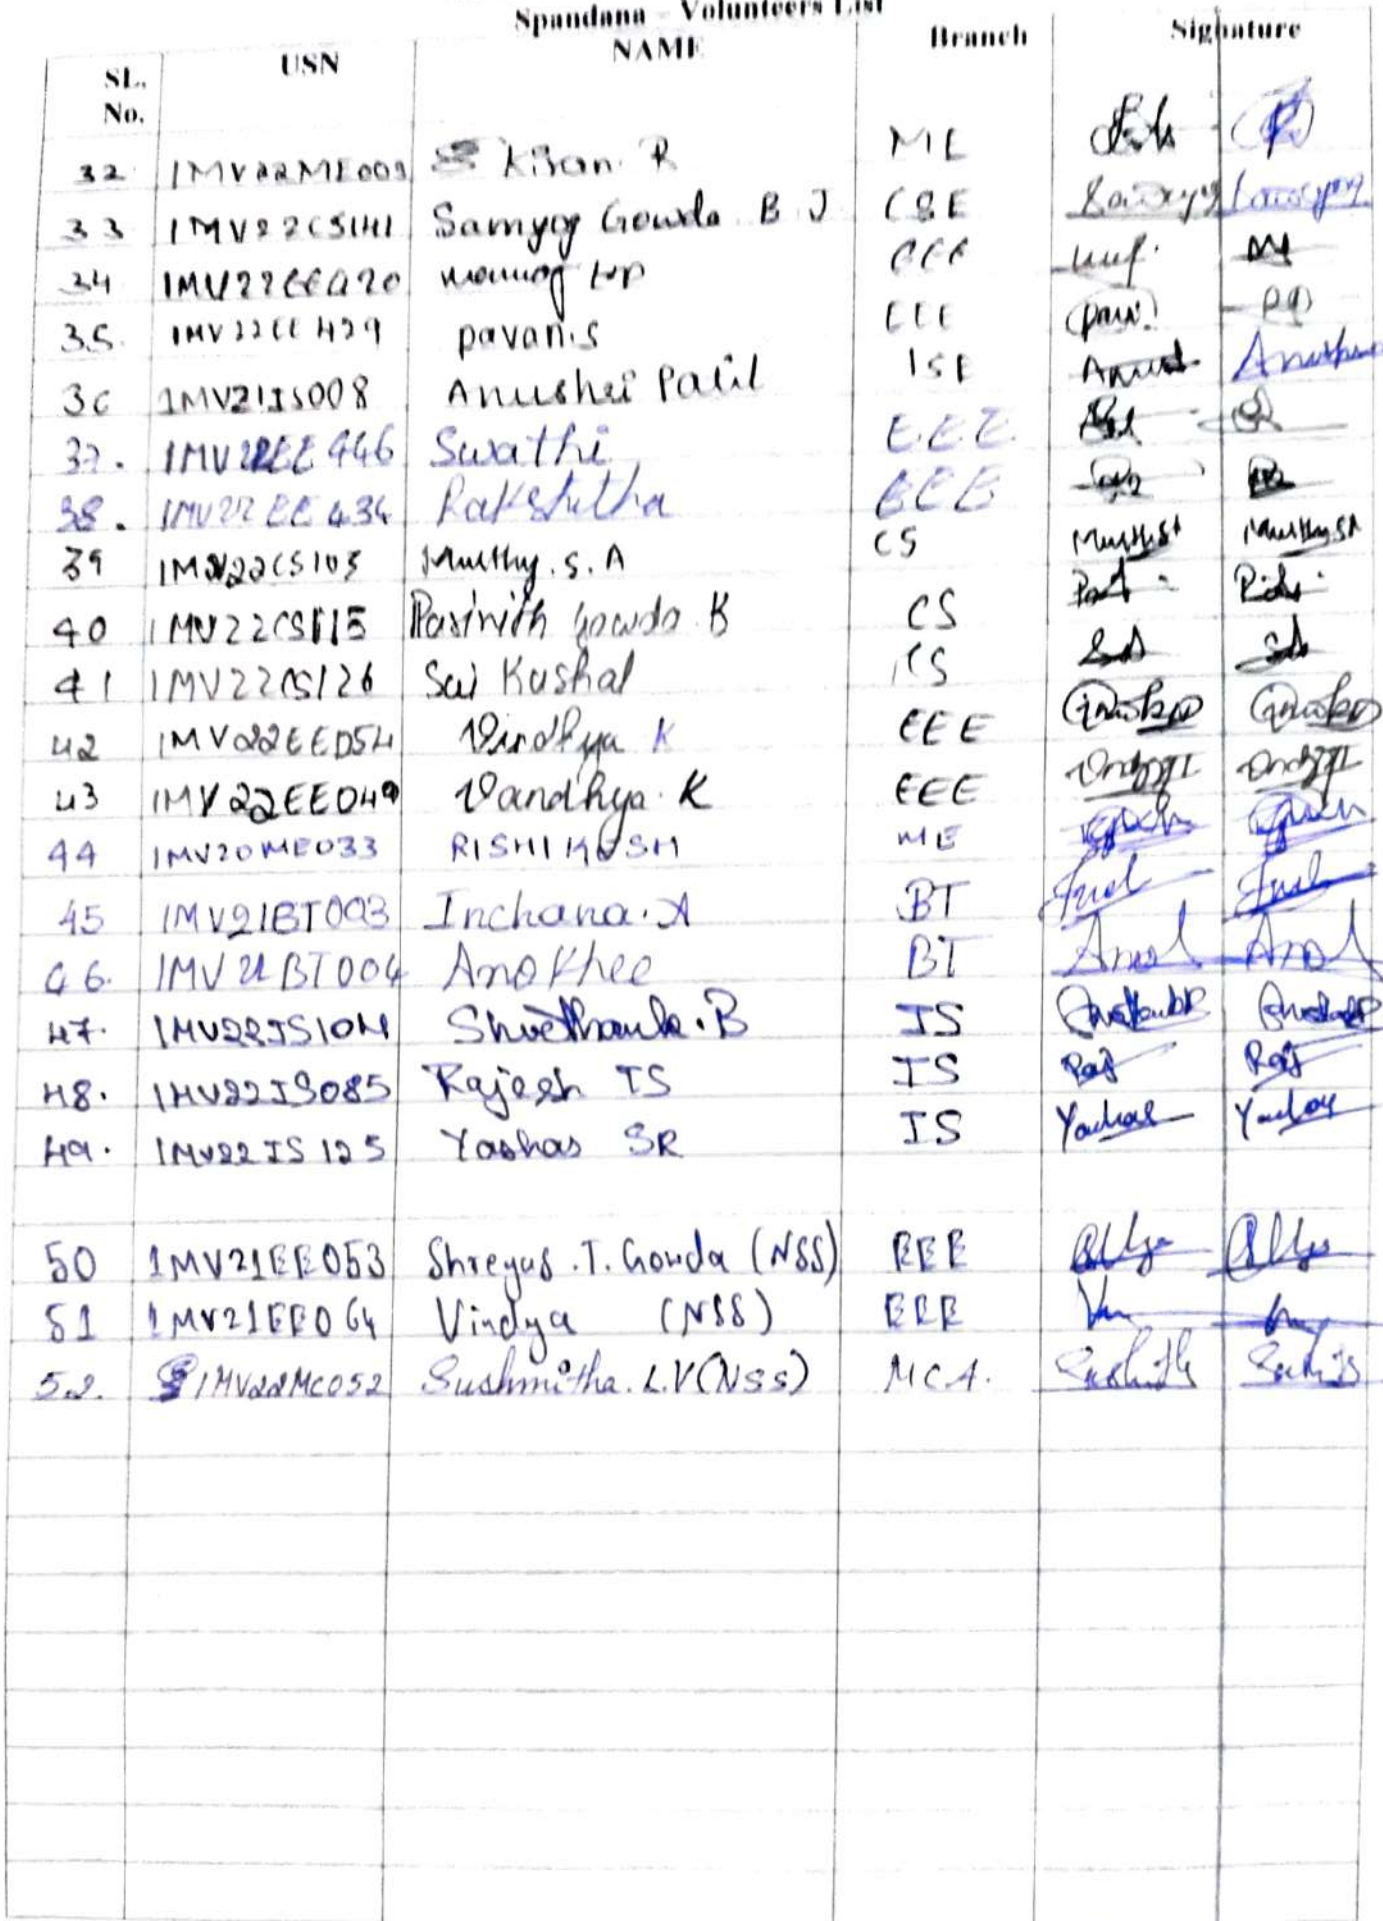 Spandana - Volunteers List
SL. No. USN NAME Branch Signature
32 1MV22ME009 Kiran. R ME
33 1MV22CS141 Samyog Gowda. B J CSE
34 1MV22EE420 EEE
35. 1MV22EE429 pavan.s EEE
36 1MV21IS008 Anushri Patil ISE
37. 1MV22EE446 Swathi EEE
38. 1MV22EE434 Rakshitha EEE
39 1MV22CS103 Murthy. S. A CS Murthy SA Murthy SA
40 1MV22CS115 Parinith Gowda. B CS
41 1MV22CS126 Sai Kushal CS
42 1MV22EE054 Vindhya K EEE
43 1MV22EE049 Vandhya. K EEE
44 1MV20ME033 RISHIKESH ME
45 1MV21BT003 Inchana. A BT
46. 1MV21BT004 Anokhee BT
47. 1MV22IS104 Shrethanka. B IS
48. 1MV22IS085 Rajesh TS IS Raj Raj
49. 1MV22IS125 Yashas SR IS Yashas
50 1MV21EE053 Shreyas. T. Gowda (NSS) EEE
51 1MV21EE064 Vindya (NSS) EEE
52. 1MV22MC052 Sushmitha. L.V (NSS) MCA.